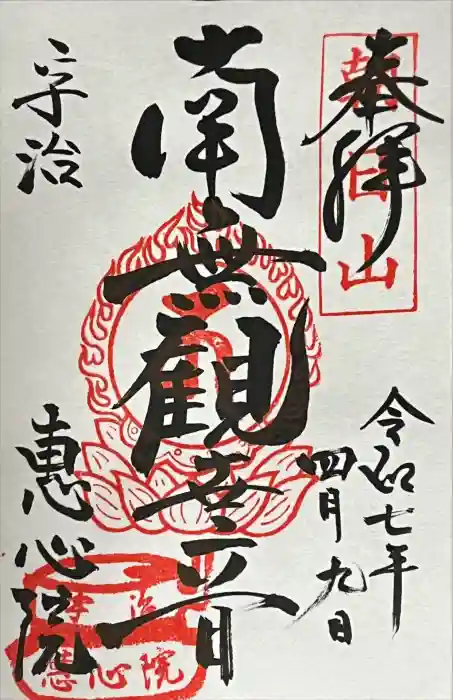 奉拝
朝日山
令和七年
四月九日
南無觀世音
宇治
惠心院
宇治
惠心院